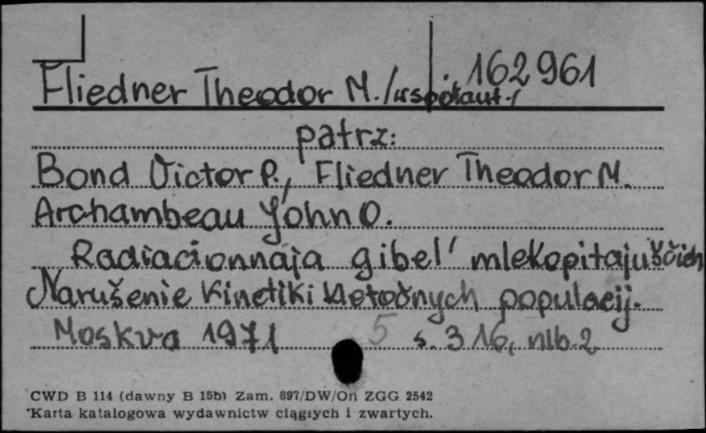 162961
Fliedner Theodor M. /współaut./
patrz:
Bond Victor P., Fliedner Theodor M.
Archambeau John O.
Radiacionnaja gibel' mlekopitajuščich
Narušenie kinetiki kletočnych populacij.
Moskva 1971 s. 316, nlb. 2
CWD B 114 (dawny B 15b) Zam. 897/DW/On ZGG 2542
*Karta katalogowa wydawnictw ciągłych i zwartych.